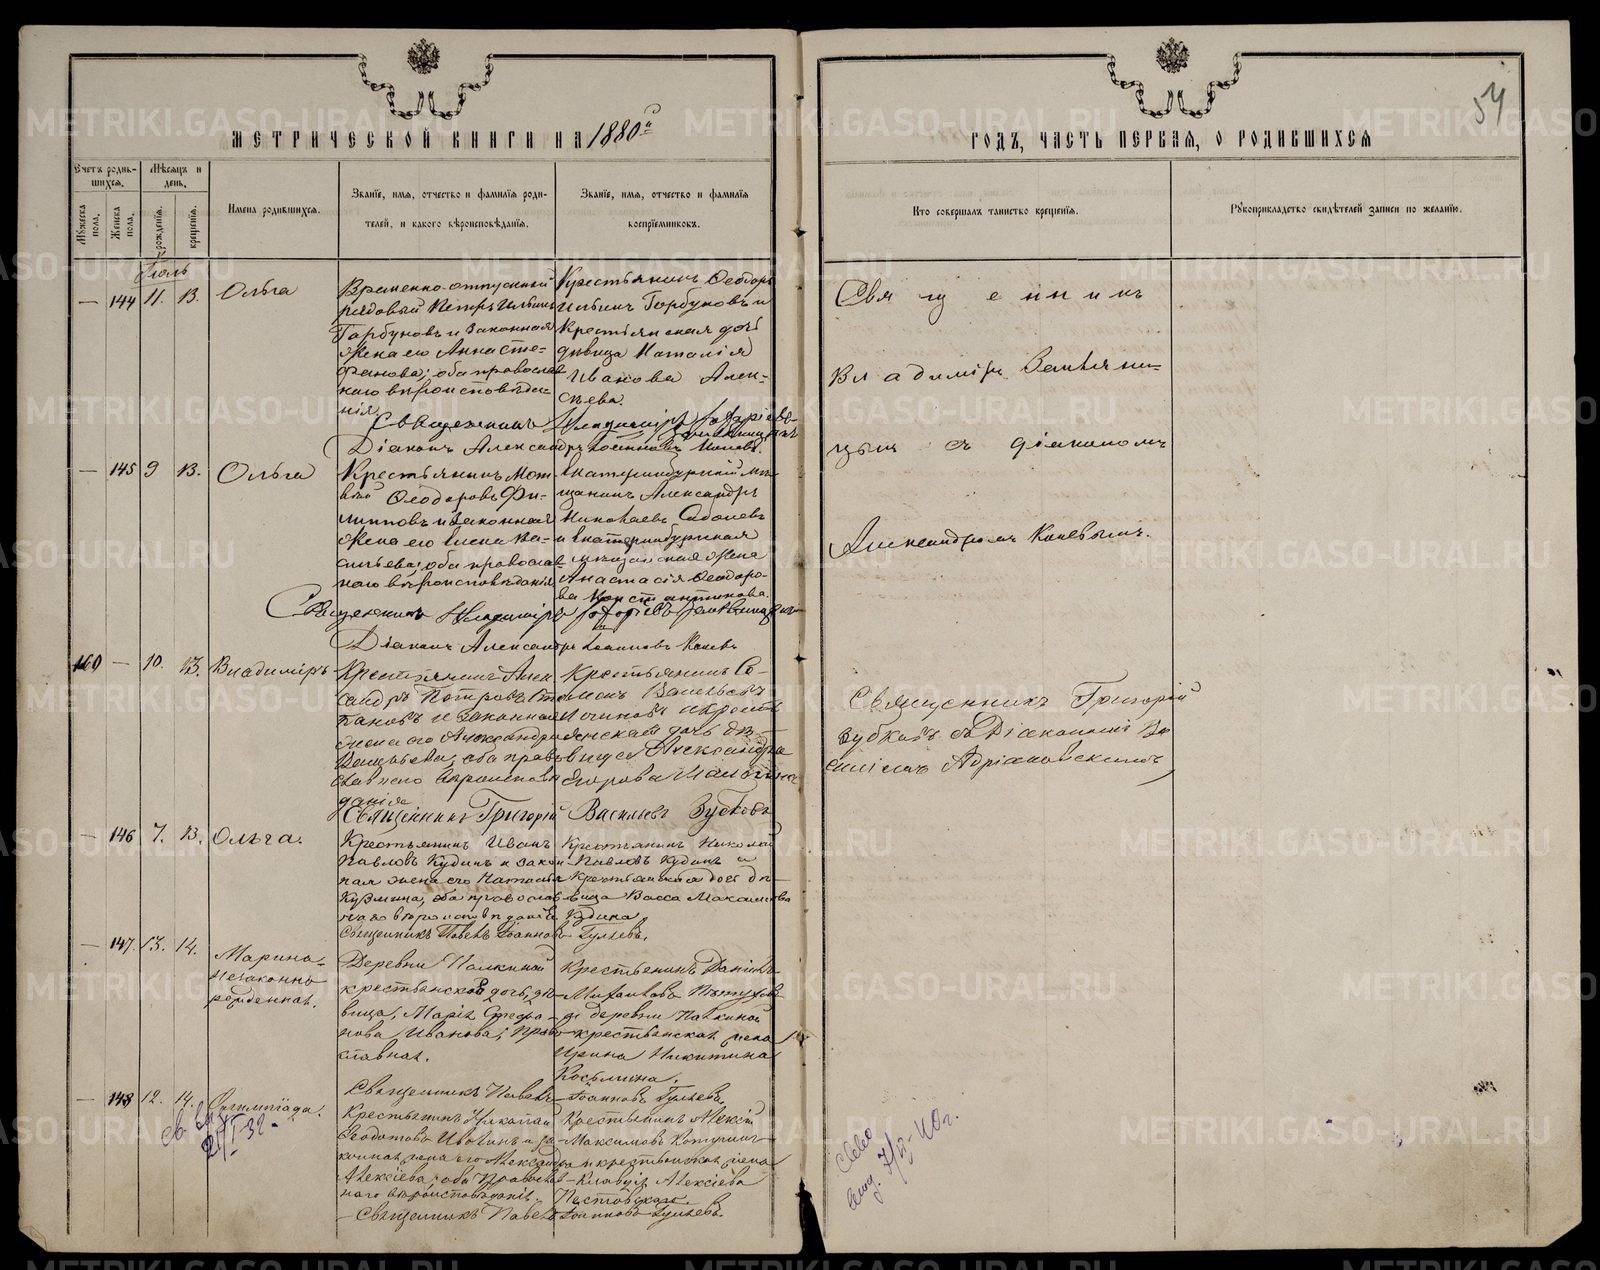 54
МЕТРИЧЕСКОЙ КНИГИ НА 1880й
ГОДЪ, ЧАСТЬ ПЕРВАЯ, О РОДИВШИХСЯ
Счетъ родившихся.
Мужеска пола.
Женска пола.
Мѣсяцъ и день.
рожденія.
крещенія.
Имена родившихся.
Званіе, имя, отчество и фамилія роди-
телей, и какого вѣроисповѣданія.
Званіе, имя, отчество и фамилія
воспріемниковъ.
Кто совершалъ таинство крещенія.
Рукоприкладство свидѣтелей записи по желанію.
Іюль
— 144 11. 13. Ольга
Временно-отпускной
рядовый Петръ Ильинъ
Горбуновъ и законная
жена его Анна Сте-
фанова; оба православ
наго вѣроисповѣда-
нія
Крестьянинъ Ѳеодоръ
Ильинъ Горбуновъ и
Крестьянская дочь
дѣвица Наталія
Иванова Алек-
сѣева.
Священникъ Владиміръ
Діаконъ Александръ Іоанновъ Коневъ.
Священникъ
Владиміръ Земляни-
цынъ съ діакономъ
Александромъ Коневымъ.
— 145 9 13. Ольга
Крестьянинъ Мат
вѣй Ѳеодоровъ Фи-
липповъ и законная
жена его Елена Ва-
сильева; оба православ
наго вѣроисповѣданія
Екатеринбургскій мѣ-
щанинъ Александръ
Николаевъ Соболевъ
и Екатеринбургская
мѣщанская жена
Анастасія Ѳеодоро-
ва Константинова.
Священникъ Владиміръ
Діаконъ Александръ Іоанновъ Коневъ
160 — 10. 13. Владиміръ
Крестьянинъ Алек
сандръ Петровъ Сте
пановъ и законная
жена его Александра
Васильева; оба право
славнаго вѣроисповѣ
данія
Крестьянинъ Се-
менъ Васильевъ
и кресть
янская дочь дѣ-
вица Александра
Егорова
Священникъ Григорій Васильевъ Зубковъ
Священникъ Григорій
Зубковъ съ Діакономъ Ва
силіемъ Адріановскимъ
— 146 7. 13. Ольга.
Крестьянинъ Иванъ
Павловъ Кудинъ и закон
ная жена его Наталья
Кузмина, оба православ
наго вѣроисповѣданія
Крестьянинъ Николай
Павловъ Кудинъ и
Крестьянская дочь дѣ-
вица Васса Максимова
Кудина.
Священникъ Павелъ Іоанновъ Гуляевъ.
— 147. 13. 14.
Марина-
незаконно
рожденная.
Деревни Палкиной
крестьянская дочь, дѣ-
вица, Марія Стефа-
нова Иванова; право
славная.
Крестьянинъ Даніилъ
Михаиловъ Пѣтуховъ
и деревни Палкиной
крестьянская жена
Ирина Никитина
Косьмина.
Священникъ Павелъ Іоанновъ Гуляевъ.
— 148 12. 14. Олимпіада.
Крестьянинъ Николай
Ѳеодотовъ и за-
конная жена его Александра
Алексіева, оба православ-
наго вѣроисповѣданія.
Крестьянинъ Алексій
Максимовъ
и крестьянская жена
Клавдія Алексіева
Священникъ Павелъ Іоанновъ Гуляевъ.